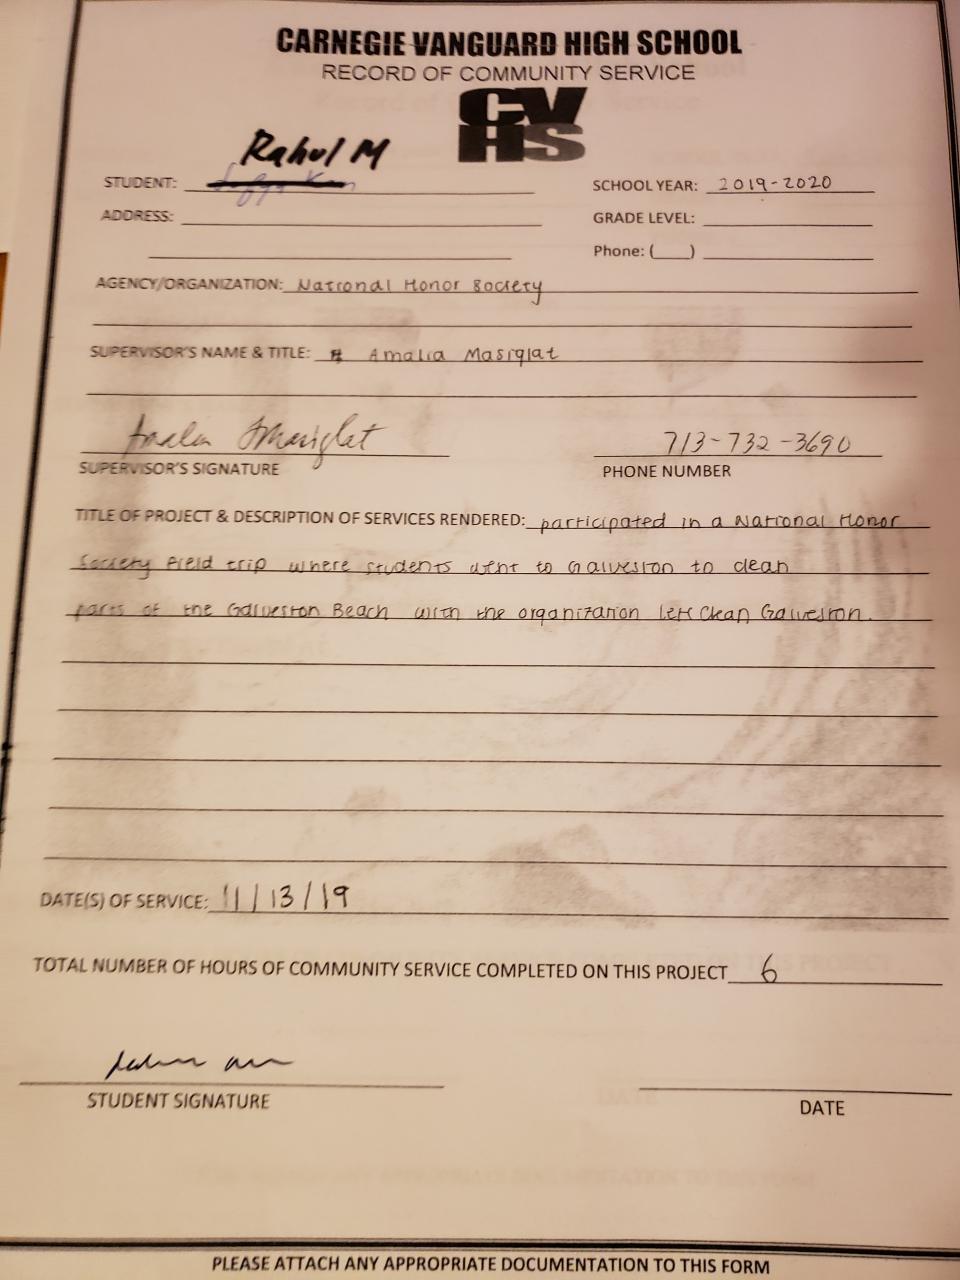 CARNEGIE VANGUARD HIGH SCHOOL
RECORD OF COMMUNITY SERVICE
CV
HS
Rahul M
STUDENT:
SCHOOL YEAR: 2019-2020
ADDRESS:
GRADE LEVEL:
Phone: (   )
AGENCY/ORGANIZATION: National Honor Society
SUPERVISOR'S NAME & TITLE: Amalia Masiglat
Amalia Masiglat
713-732-3690
SUPERVISOR'S SIGNATURE
PHONE NUMBER
TITLE OF PROJECT & DESCRIPTION OF SERVICES RENDERED: participated in a National Honor
Society field trip where students went to Galveston to clean
parts of the Galveston Beach with the organization Lets Clean Galveston.
DATE(S) OF SERVICE: 11/13/19
TOTAL NUMBER OF HOURS OF COMMUNITY SERVICE COMPLETED ON THIS PROJECT 6
STUDENT SIGNATURE
DATE
PLEASE ATTACH ANY APPROPRIATE DOCUMENTATION TO THIS FORM